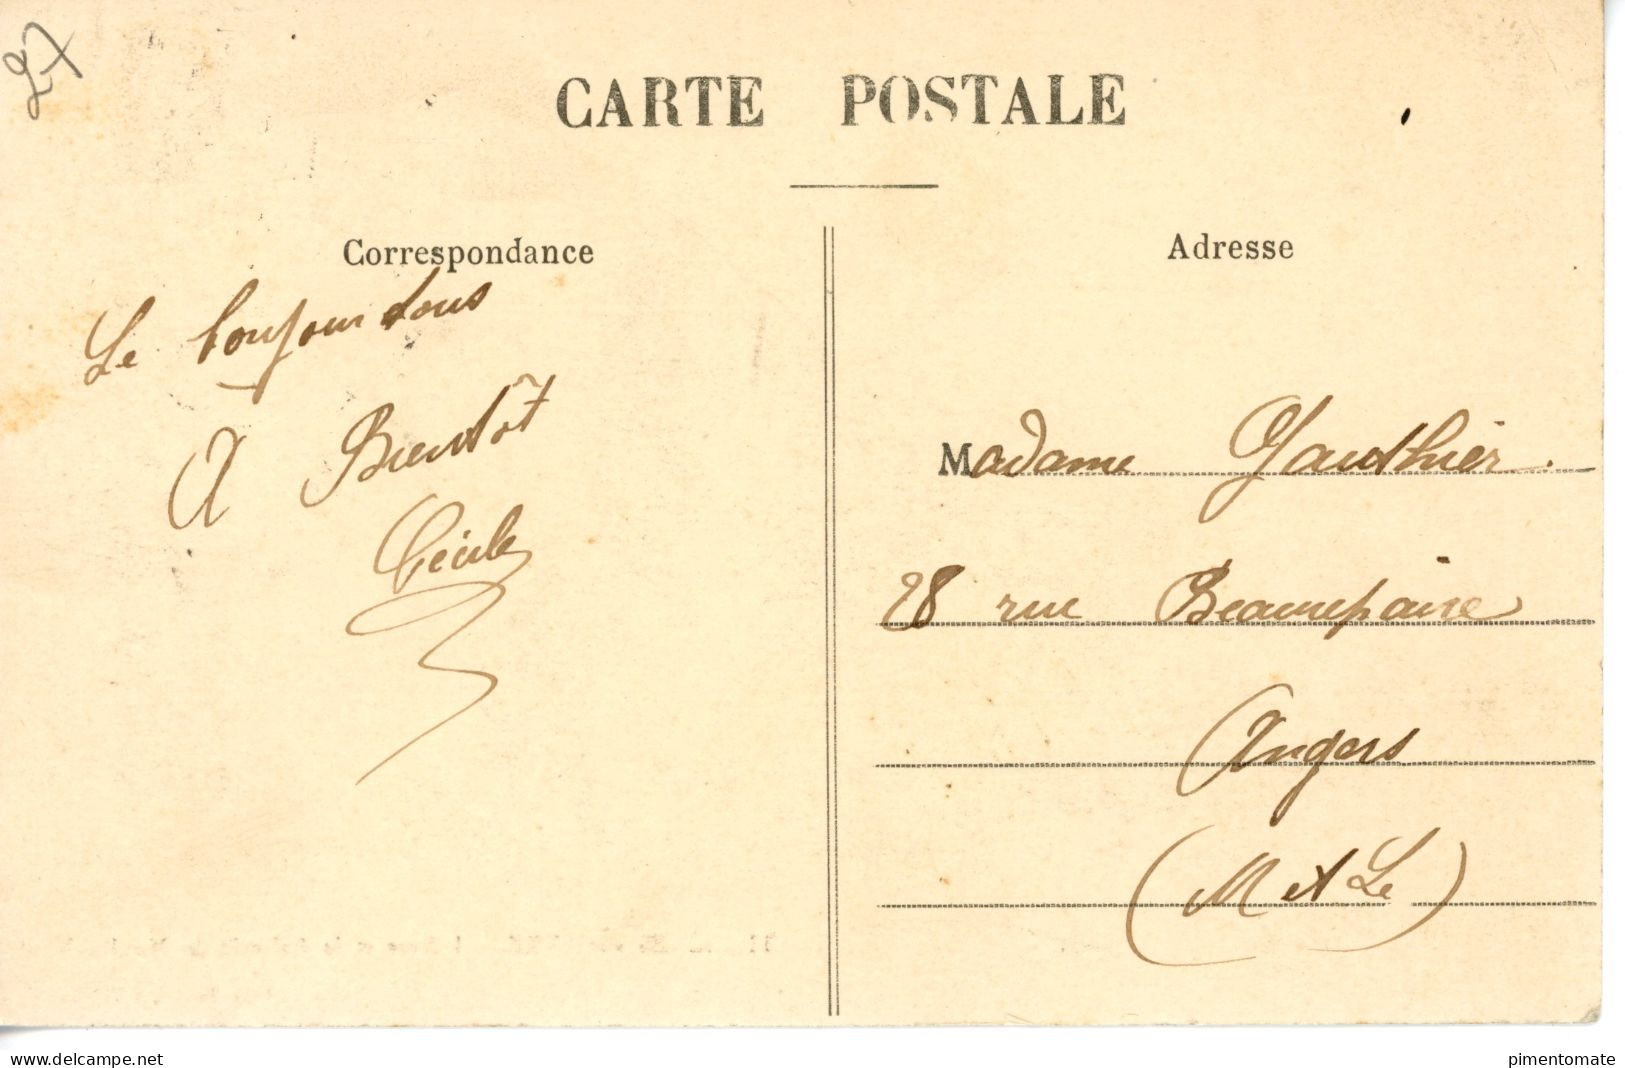 27
CARTE POSTALE
Correspondance
Le bonjour à tous
A Bientôt
Cécile
Adresse
Madame Gauthier.
28 rue Beaurepaire
Angers
(M et Le)
www.delcampe.net
pimentomate